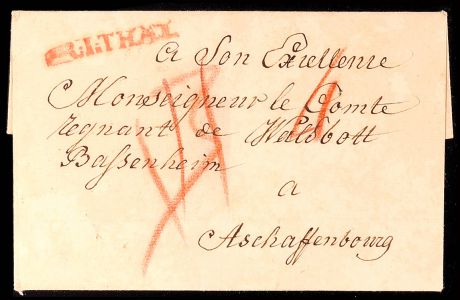 R.I.THAL
a Son Excellence
Monseigneur le Comte
regnant de Waldbott
Bassenheim
a
Aschaffenbourg